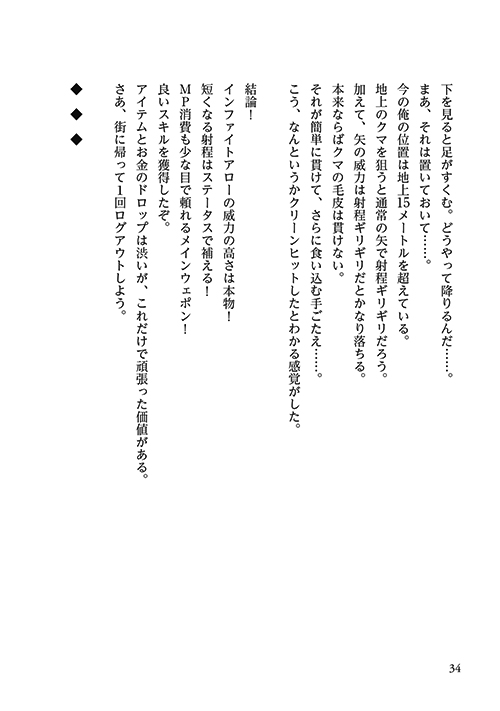 下を見ると足がすくむ。どうやって降りるんだ……。
まあ、それは置いておいて……。
今の俺の位置は地上15メートルを超えている。
地上のクマを狙うと通常の矢で射程ギリギリだろう。
加えて、矢の威力は射程ギリギリだとかなり落ちる。
本来ならばクマの毛皮は貫けない。
それが簡単に貫けて、さらに食い込む手ごたえ……。
こう、なんというかクリーンヒットしたとわかる感覚がした。
結論！
インファイトアローの威力の高さは本物！
短くなる射程はステータスで補える！
ＭＰ消費も少な目で頼れるメインウェポン！
良いスキルを獲得したぞ。
アイテムとお金のドロップは渋いが、これだけで頑張った価値がある。
さあ、街に帰って１回ログアウトしよう。
◆ ◆ ◆
34